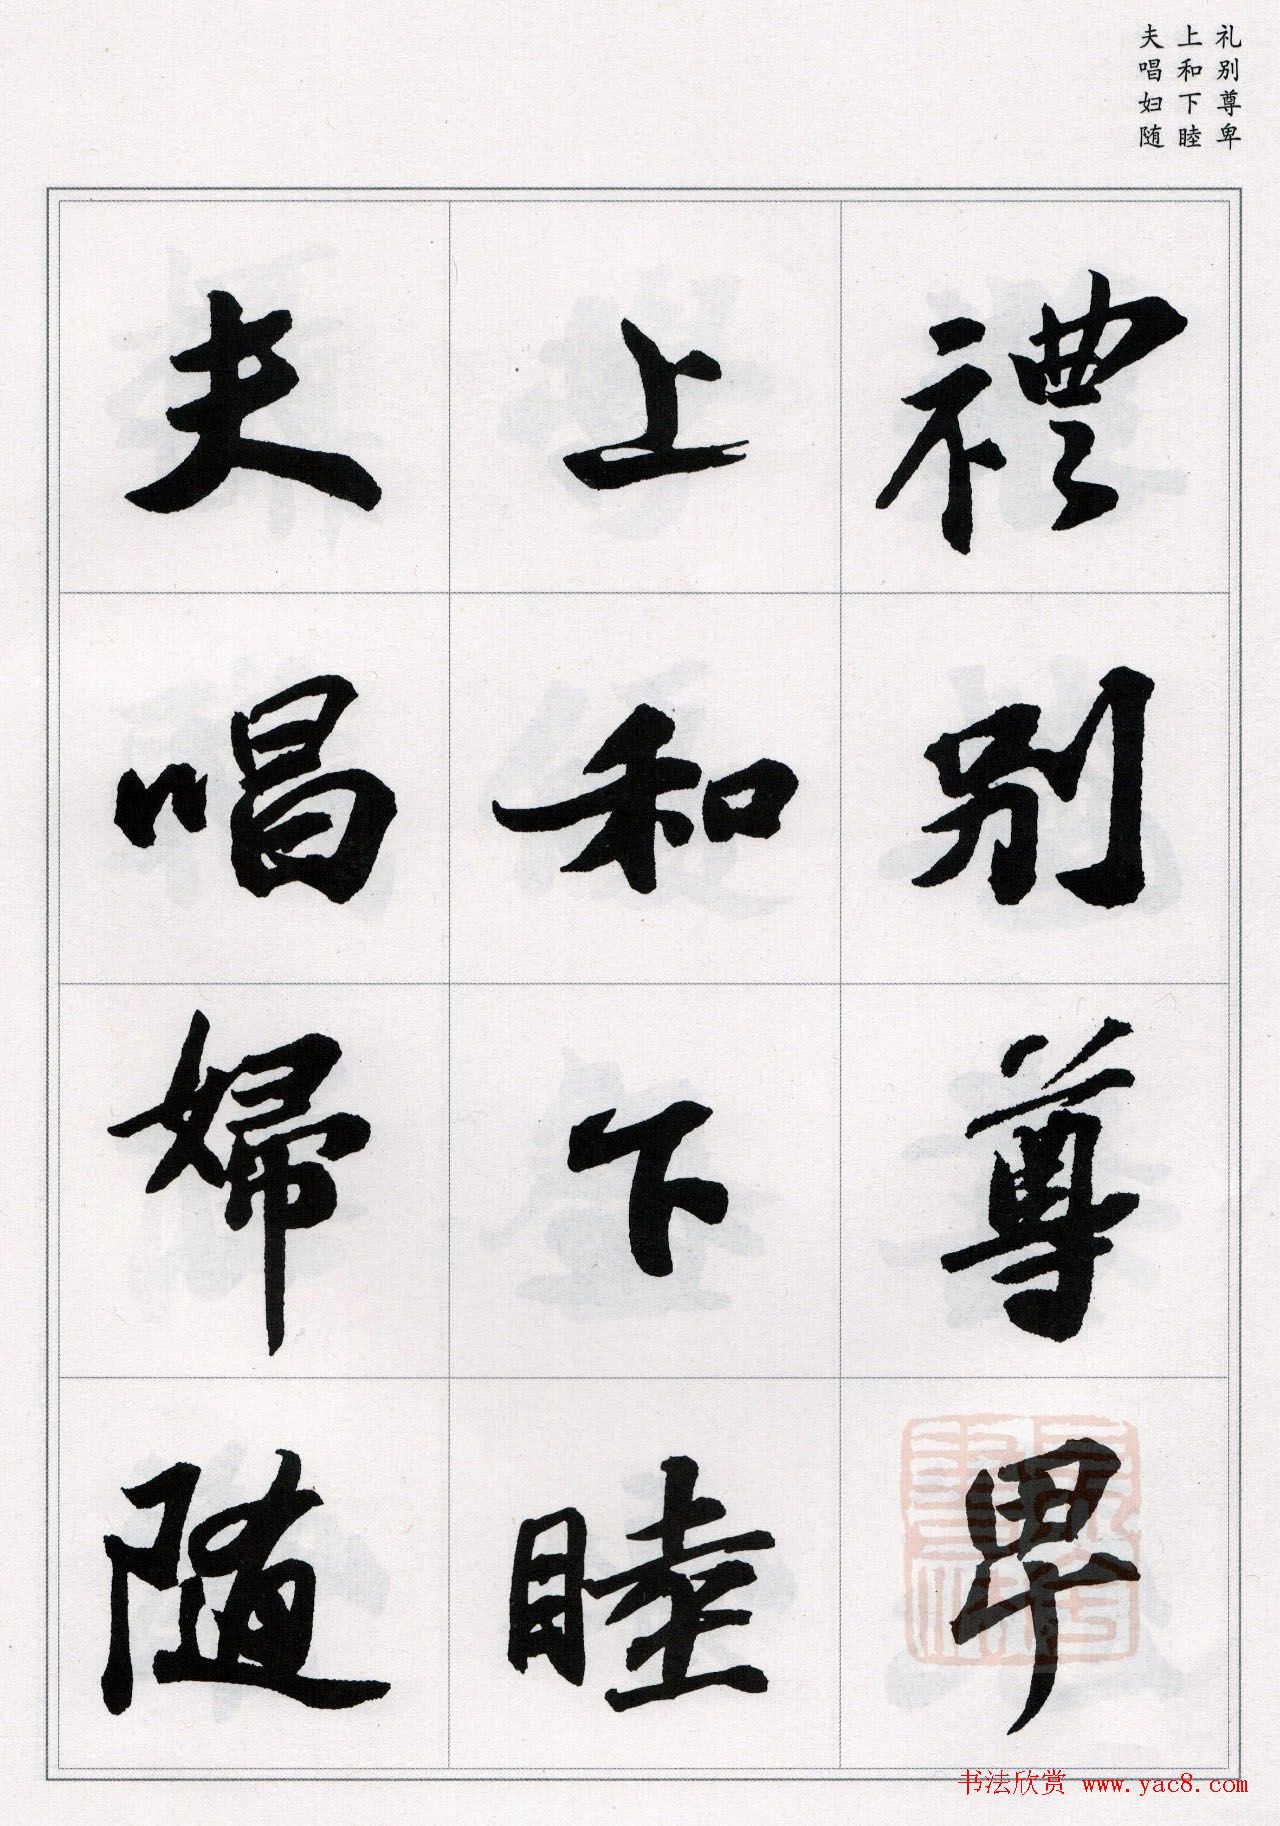 礼别尊卑
上和下睦
夫唱妇随
禮别尊卑
上和下睦
夫唱婦随
书法欣赏 www.yac8.com